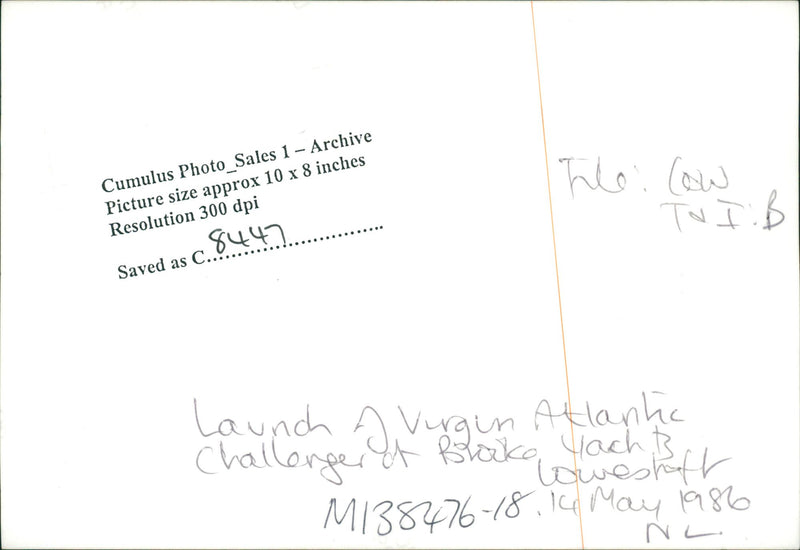 Cumulus Photo_Sales 1 – Archive
Picture size approx 10 x 8 inches
Resolution 300 dpi
Saved as C...8447...
File: Low
T N I: B
Launch of Virgin Atlantic
Challenger at Brooke Yachts
Lowestoft
M138476-18. 14 May 1986
NL.